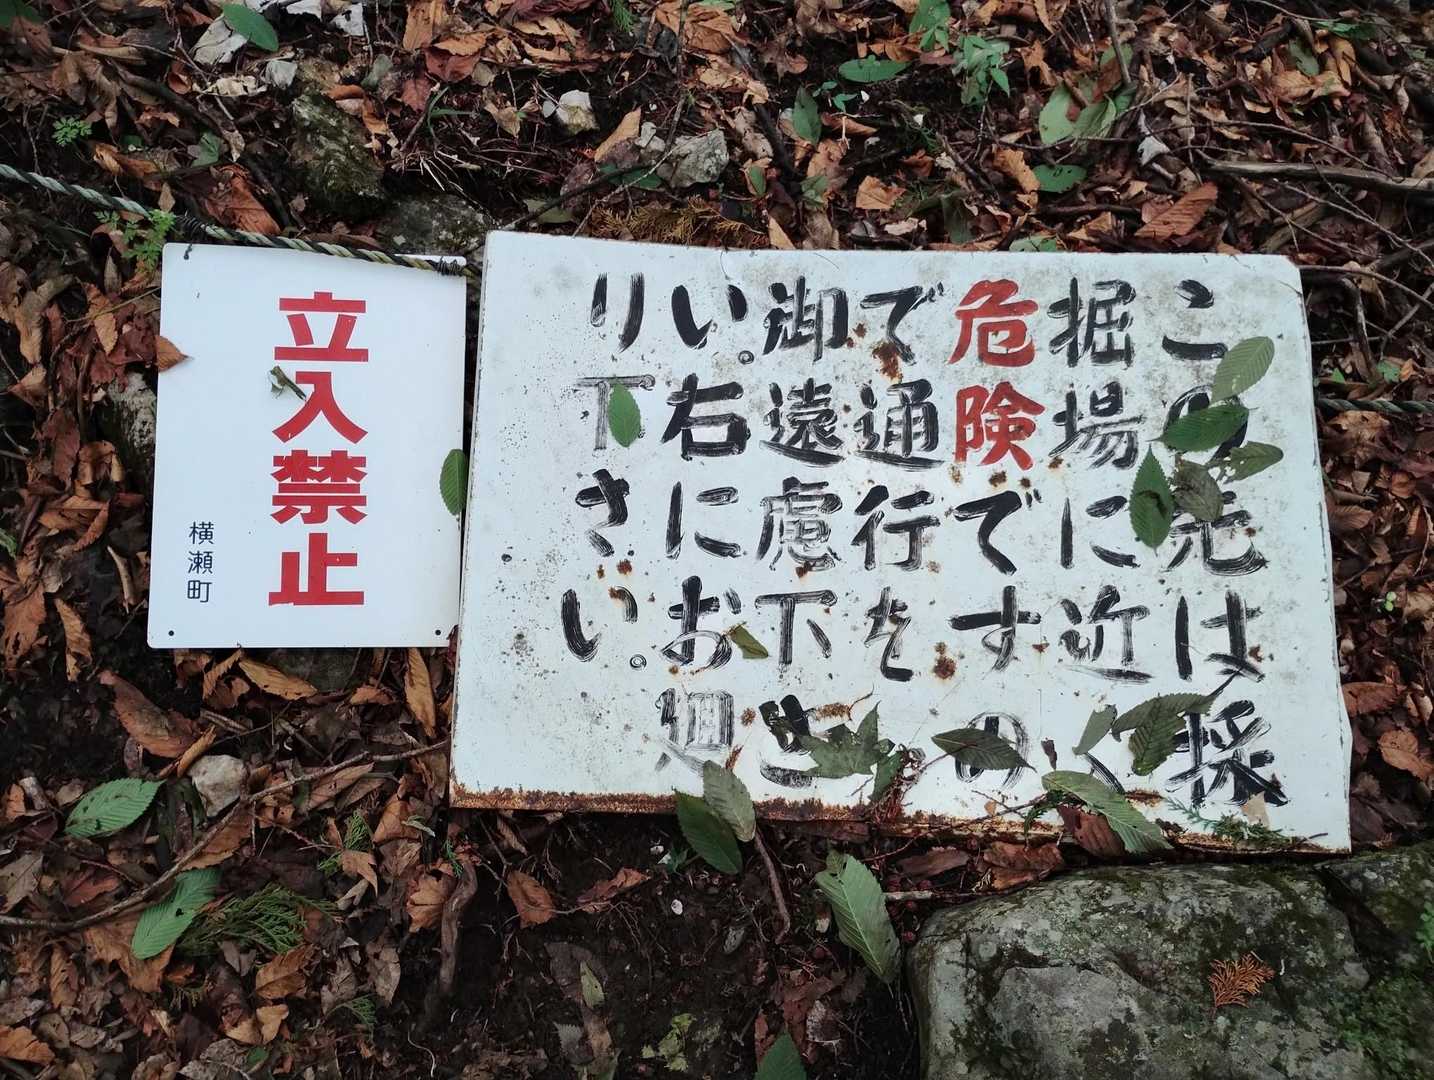 この先は採
掘場に近く
危険ですの
で通行を
御遠慮下さ
い。右にお廻
り下さい。
立入禁止
横瀬町